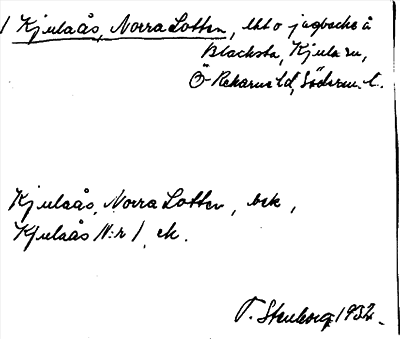 1 Kjulaås, Norra Lotten, lht o jagbacke å
Blacksta, Kjula sn,
Ö-Rekarne hd, Söderm. l.
Kjulaås, Norra Lotten, bek,
Kjulaås N:r 1, ek.
T. Stenborg 1932.